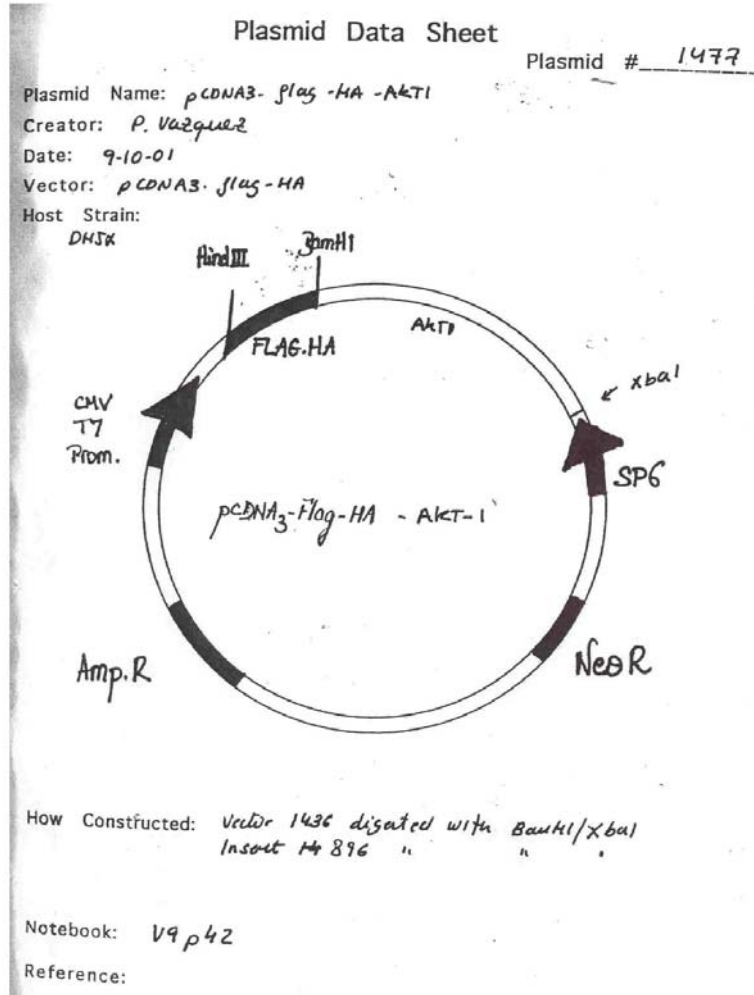 Plasmid Data Sheet
Plasmid # 1477
Plasmid Name: pCDNA3- flag -HA -AKT1
Creator: P. Vazquez
Date: 9-10-01
Vector: pCDNA3. flag-HA
Host Strain:
DH5α
HindIII
BamH1
FLAG.HA
AKT1
Xba1
CMV
T7
Prom.
SP6
pCDNA3-Flag-HA - AKT-1
Amp.R
Neo R
How Constructed: Vector 1436 digested with BamH1/Xba1
Insert 896 " " "
Notebook: V9 p42
Reference: